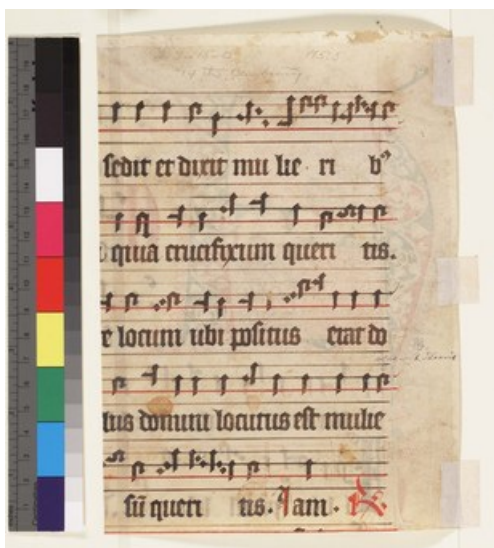 sedit et dixit mu lie ri b⁹
quia crucifixum queri tis.
e locum ubi positus erat do
lus domini locutus est mulie
sū queri tis. Iam.